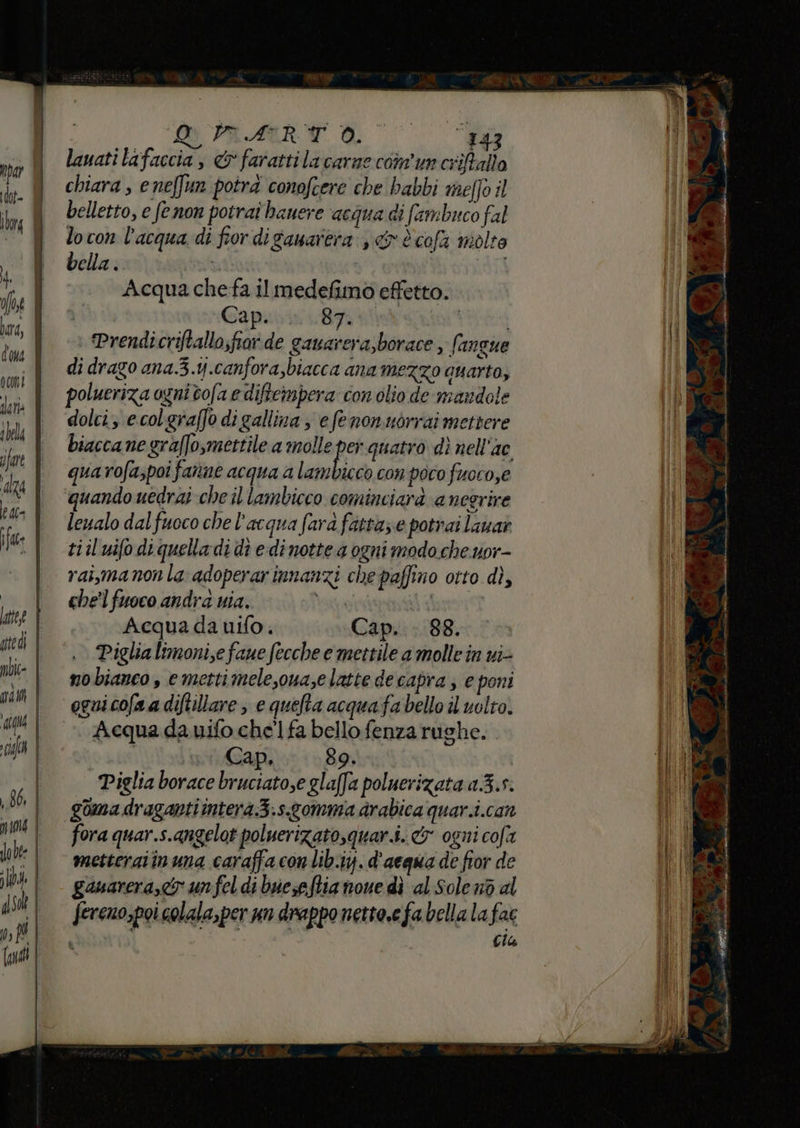 QVARTO. 143
lauati lafaccia, & farattila carne com'un criſtallo
chiara, e neſſun potrà conoſcere che habbi meſſo il
belletto, e ſe non potrai hauere acqua di ſambuco fal
lo con l'acqua di fior di gauarera, & è coſa molto
bella.
Acqua che fa il medeſimo effetto.
Cap. 87.
Prendi criſtallo, fior de gauarera, borace, ſangue
di drago ana.ʒ.ij.canfora, biacca ana mezzo quarto,
polueriza ogni coſa e diſtempera con olio de mandole
dolci, e col graſſo di gallina, e ſe non uorrai mettere
biacca ne graſſo, mettile a molle per quatro dì nell'ac
qua roſa, poi fanne acqua a lambicco con poco fuoco, e
quando uedrai che il lambicco cominciarà a negrire
leualo dal fuoco che l'acqua ſarà fatta, e potrai lauar
ti il uiſo di quella di dì e di notte a ogni modo che uor-
rai, ma non la adoperar innanzi che paſſino otto dì,
che'l fuoco andrà uia.
Acqua da uiſo. Cap. 88.
Piglia limoni, e fane ſecche e mettile a molle in ui-
no bianco, e metti mele, oua, e latte de capra, e poni
ogni coſa a diſtillare, e queſta acqua fa bello il uolto.
Acqua da uiſo che'l fa bello ſenza rughe.
Cap. 89.
Piglia borace bruciato, e glaſſa poluerizata a.ʒ.s.
gōma draganti intera.ʒ.s.gomma arabica quar.i.can
fora quar.s.angelot poluerizato, quar.i. & ogni coſa
metterai in una caraffa con lib.iij. d'acqua de fior de
gauarera, & un fel di bue, e ſtia noue dì al Sole nō al
ſereno, poi colala, per un drappo netto. e fa bella la fac
cia